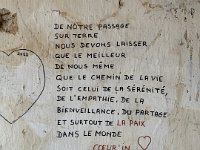 DE NOTRE PASSAGE
SUR TERRE
NOUS DEVONS LAISSER
QUE LE MEILLEUR
DE NOUS MÊME
QUE LE CHEMIN DE LA VIE
SOIT CELUI DE LA SÉRÉNITÉ,
DE L'EMPATHIE, DE LA
BIENVEILLANCE, DU PARTAGE
ET SURTOUT DE LA PAIX
DANS LE MONDE
CŒUR'IN